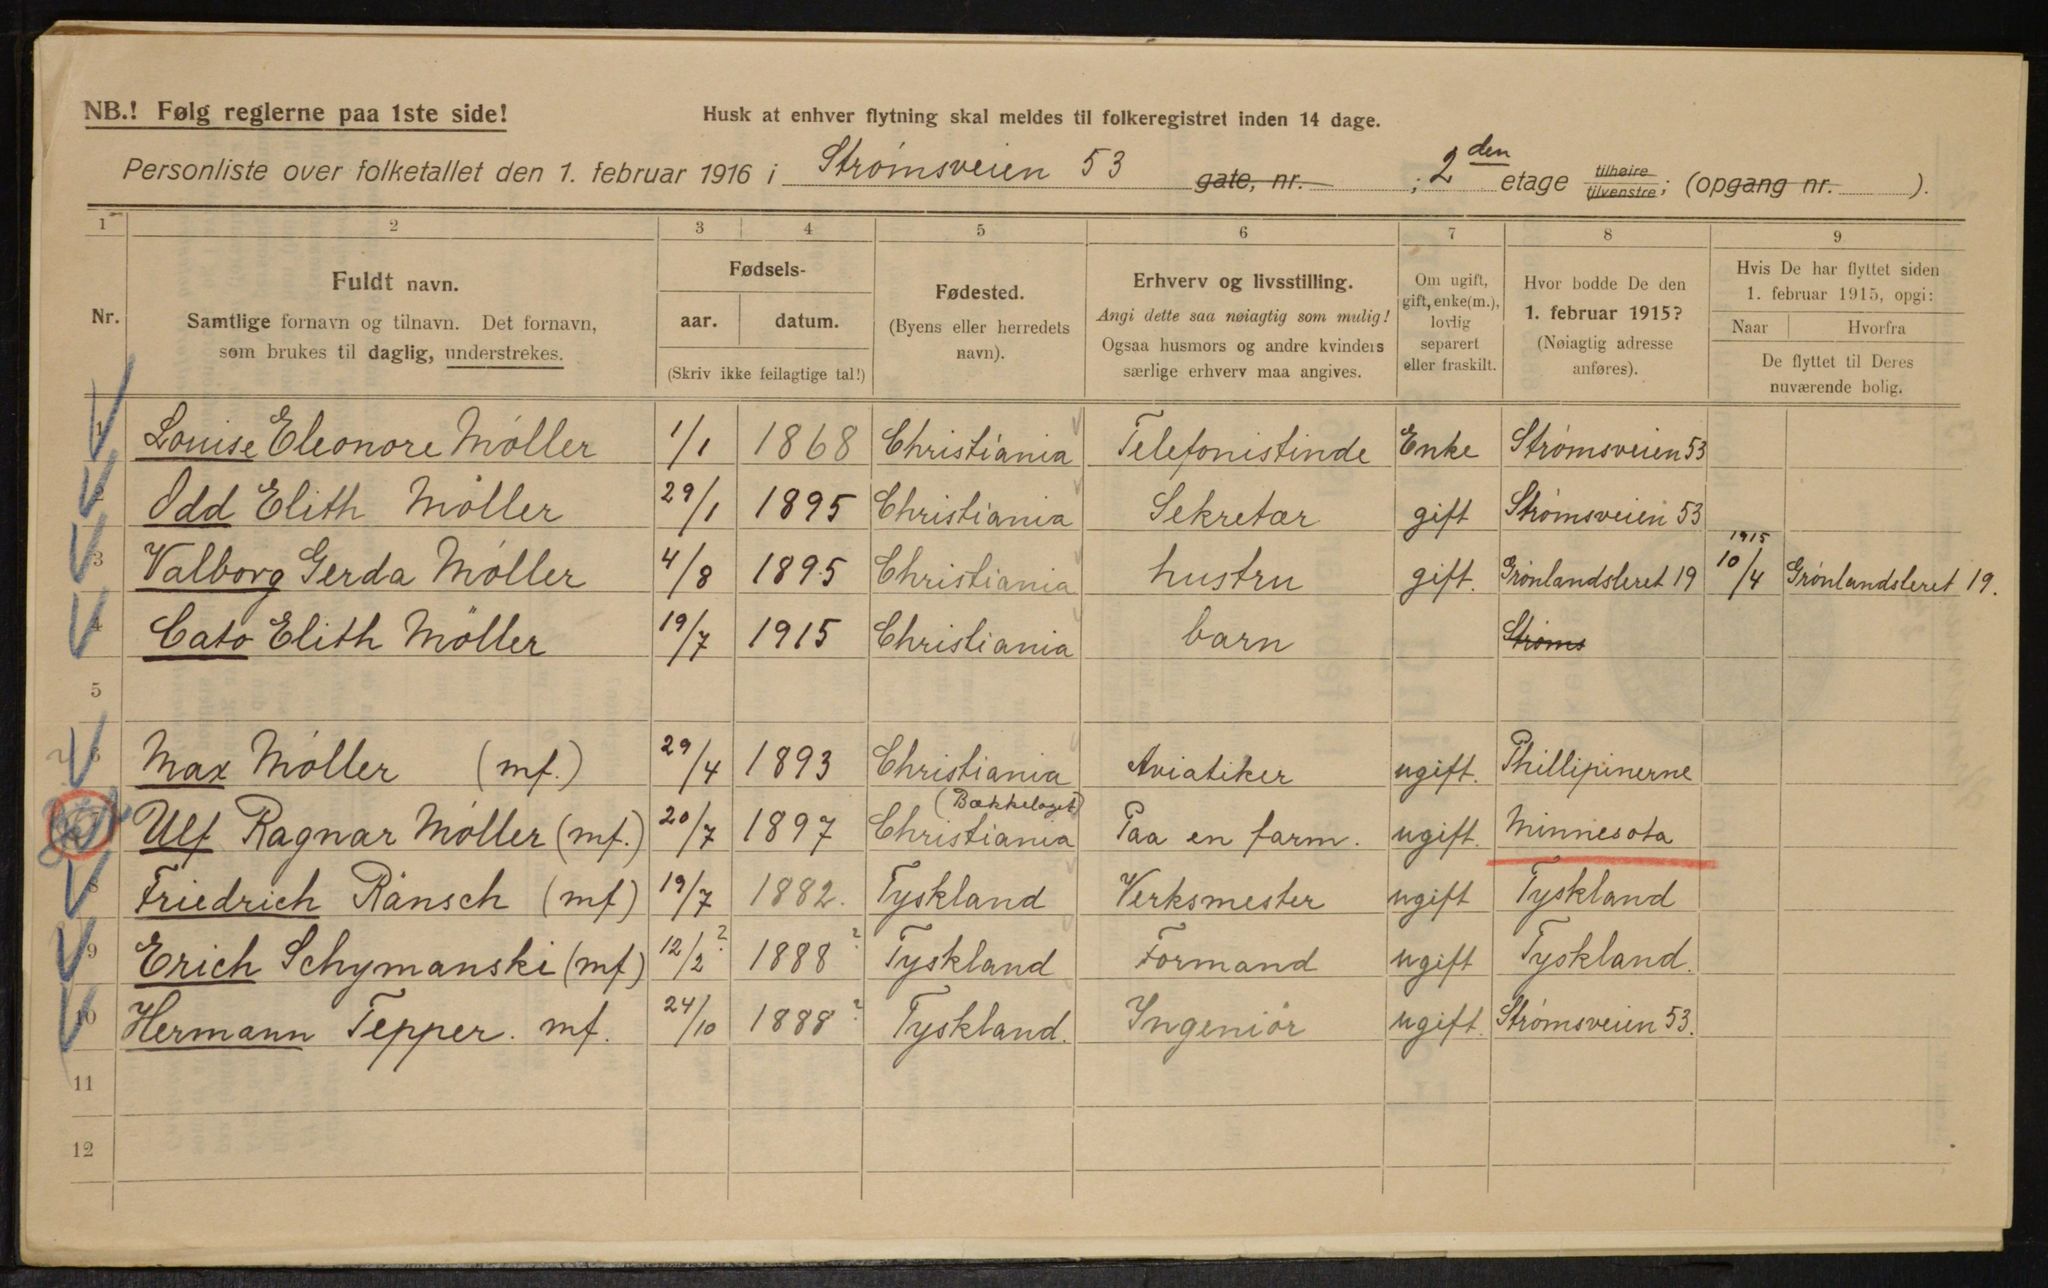 NB.! Følg reglerne paa 1ste side!
Husk at enhver flytning skal meldes til folkeregistret inden 14 dage.
Personliste over folketallet den 1. februar 1916 i Strømsveien 53 gate, nr. ; 2den etage tilhøire tilvenstre; (opgang nr. ).
1 2 3 4 5 6 7 8 9
Nr.
Fuldt navn.
Samtlige fornavn og tilnavn. Det fornavn,
som brukes til daglig, understrekes.
Fødsels-
aar. datum.
(Skriv ikke feilagtige tal!)
Fødested.
(Byens eller herredets
navn).
Erhverv og livsstilling.
Angi dette saa nøiagtig som mulig!
Ogsaa husmors og andre kvinders
særlige erhverv maa angives.
Om ugift,
gift, enke(m.),
lovlig
separert
eller fraskilt.
Hvor bodde De den
1. februar 1915?
(Nøiagtig adresse
anføres).
Hvis De har flyttet siden
1. februar 1915, opgi:
Naar Hvorfra
De flyttet til Deres
nuværende bolig.
1 Louise Eleonore Möller 1/1 1868 Christiania Telefonistinde Enke Strømsveien 53
2 Odd Elith Möller 29/1 1895 Christiania Sekretær gift Strømsveien 53
3 Valborg Gerda Möller 4/8 1895 Christiania hustru gift. Grønlandsleret 19 1915 10/4 Grønlandsleret 19.
4 Cato Elith Möller 19/7 1915 Christiania barn Strøms
5
6 Max Möller (mf.) 29/4 1893 Christiania Aviatiker ugift. Phillipinerne
7 Ulf Ragnar Möller (mf.) 20/7 1897 (Bækkelaget) Christiania Paa en farm. ugift. Minnesota
8 Friedrich Ränsch (mf) 19/7 1882. Tyskland Verksmester ugift Tyskland
9 Erich Schymanski (mf) 12/2? 1888? Tyskland Formand ugift Tyskland.
10 Hermann Tepper. mf. 24/10 1888? Tyskland. Ingeniör ugift. Strømsveien 53.
11
12